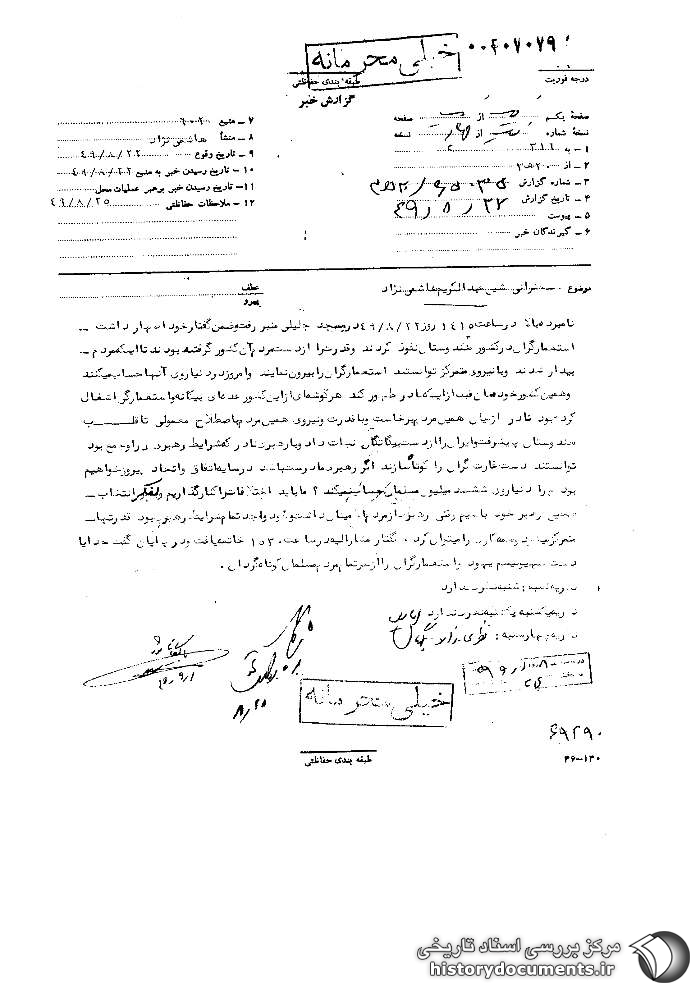 ۰۰۴۰۷۰۷۹
خیلی محرمانه
طبقه بندی حفاظتی
گزارش خبر
درجه فوریت
صفحهٔ یکم از صفحه
نسخهٔ شماره از نسخه
۱ – به ۳۱۱
۲ – از
۳ – شماره گزارش
۴ – تاریخ گزارش ۴۹/۸/۲۳
۵ – پیوست
۶ – گیرندگان خبر
۷ – منبع
۸ – منشأ هاشمی نژاد
۹ – تاریخ وقوع ۴۹/۸/۲۲
۱۰ – تاریخ رسیدن خبر به منبع ۴۹/۸/۲۲
۱۱ – تاریخ رسیدن خبر برهبر عملیات محل
۱۲ – ملاحظات حفاظتی ۴۹/۸/۲۵
موضوع سخنرانی شیخ عبدالکریم هاشمی نژاد
عطف
پیرو
نامبرده بالا در ساعت روز ۴۹/۸/۲۲ در مسجد جلیلی منبر رفت و ضمن گفتار خود اظهار داشت –
استعمارگران در کشور هندوستان نفوذ کردند و قدرت را از دست مردم آن کشور گرفته بودند تا اینکه مردم –
بیدار شدند و با نیروی متمرکز توانستند استعمارگران را بیرون نمایند و امروز در دنیا روی آنها حساب میکنند
و همین کشور خودمان قبل از اینکه نادر ظهور کند هر گوشه‌ای از این کشور عده‌ای بیگانه و استعمارگر اشغال
کرده بود نادر از میان همین مردم برخاست و با قدرت و نیروی همین مردم باصطلاح معمولی تا قلب
هندوستان پیشرفت و ایران را از دست بیگانگان نجات داد و با رهبری نادر که شرایط رهبری در او جمع بود
توانستند دست غارت گران را کوتاه سازند اگر رهبر ما درست باشد در سایه اتفاق و اتحاد پیروز خواهیم
بود چرا دنیا روی ششصد میلیون مسلمان حساب نمیکند؟ ما باید اختلافات را کنار گذاریم و بفکر انتخاب –
صحیح رهبر خود باشیم وقتی رهبر از مردم با ایمان داشته و واجد تمام شرایط رهبری بود قدرتها
متمرکز میشود و همه کاری را میتوان کرد. گفتار مشارالیه در ساعت خاتمه یافت و در پایان گفت خدایا
دست صهیونیسم یهود و استعمارگران را از سر تمام مردم مسلمان کوتاه گردان.
نظریه شنبه: شنبه نظری ندارد
نظریه یکشنبه یکشنبه نظری ندارد
نظریه چهارشنبه: نظری ندارد
خیلی محرمانه
۶۹۲۹۰
طبقه بندی حفاظتی
۳۶–۱۳۰
مرکز بررسی اسناد تاریخی
historydocuments.ir